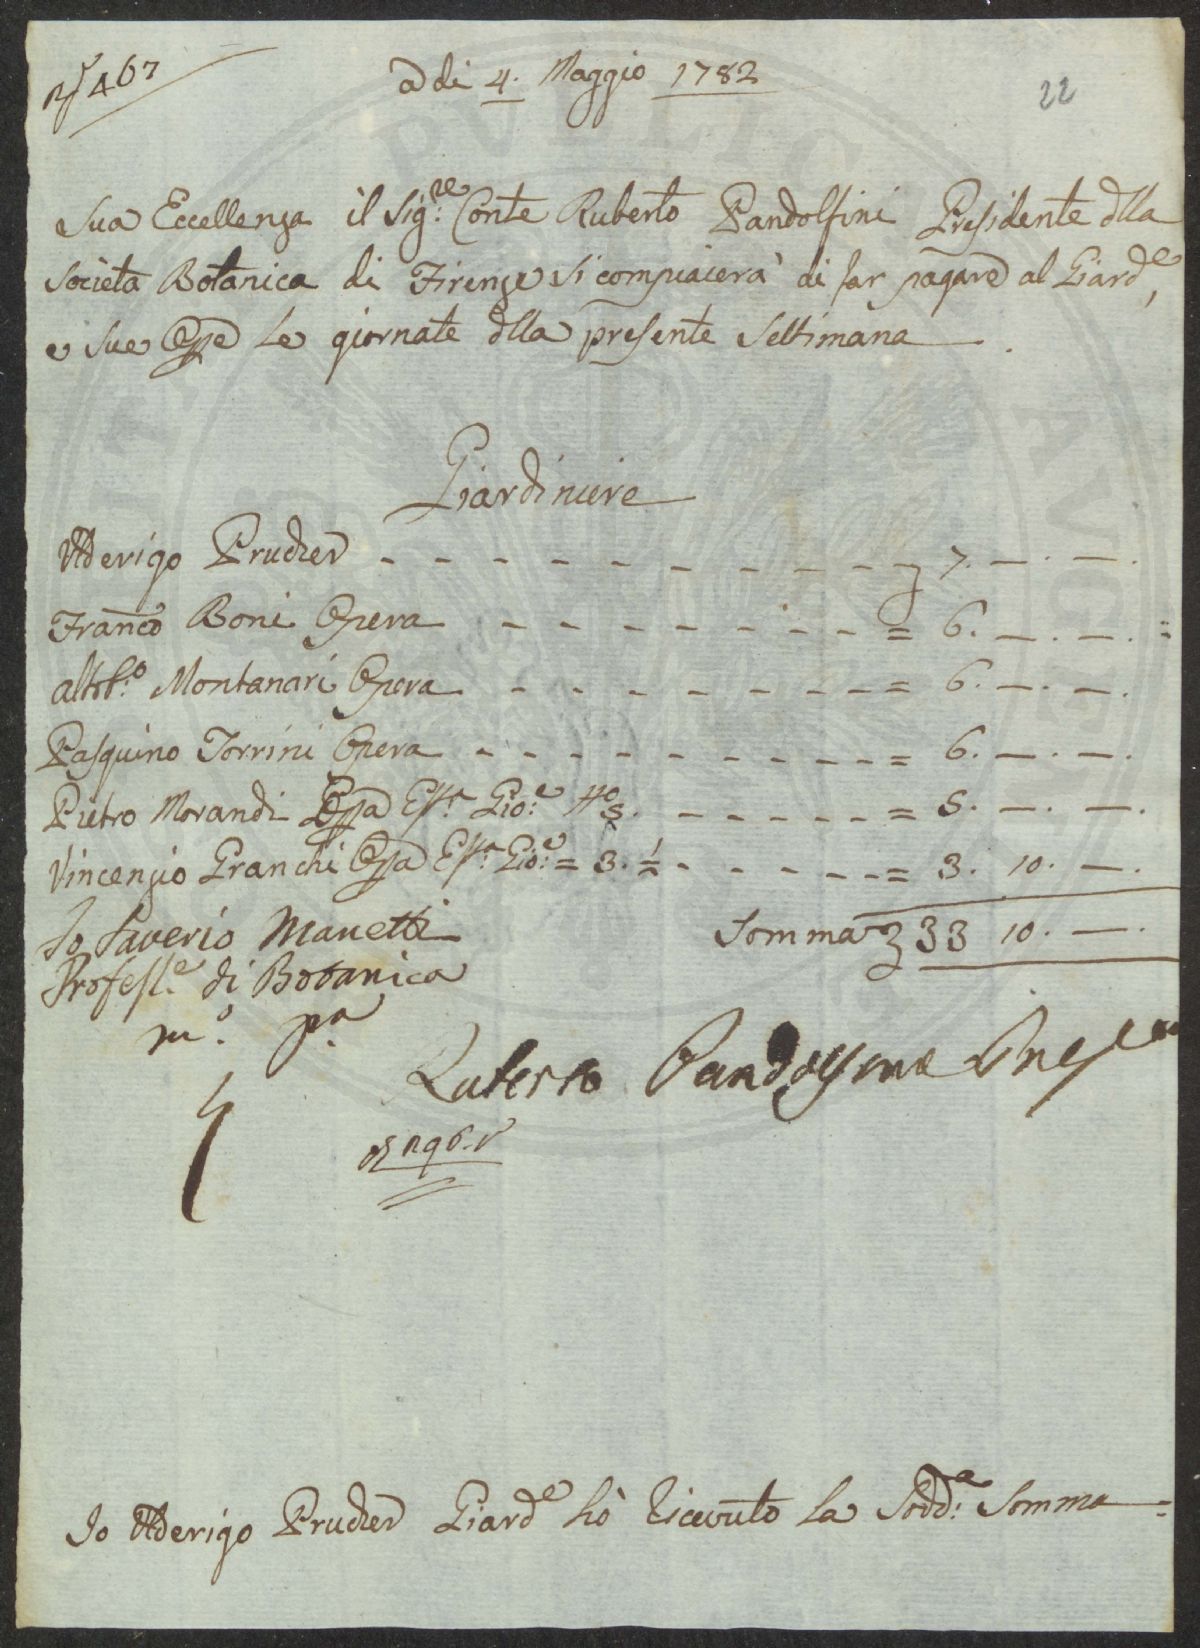 Nº 467
A di 4. Maggio 1782
22
Sua Eccellenza il Sig.re Conte Ruberto Pandolfini Presidente dlla
Società Botanica di Firenze si compiacerà di far pagare al Giard.e,
e sue Opre Le giornate dlla presente Settimana
Giardiniere
Aderigo Prucher - - - - - - - - - - 7. —. —.
Franco Boni Opera - - - - - - - - = 6. —. —.
Montanari Opera - - - - - - - - = 6. —. —.
Pasquino Torrini Opera - - - - - - - - = 6. —. —.
Pietro Morandi Opa Gio:e 5. - - - - - - = 5. —. —.
Vincenzio Granchi Opa Gio:e = 3. ½ - - - - - = 3. 10. —.
Somma 33 10. —.
Io Saverio Manetti
Profess.e di Botanica
m.o p.a
Ruberto Pandolfini
Io Aderigo Prucher Giard.e hò Ricevuto La Sodd.a Somma =